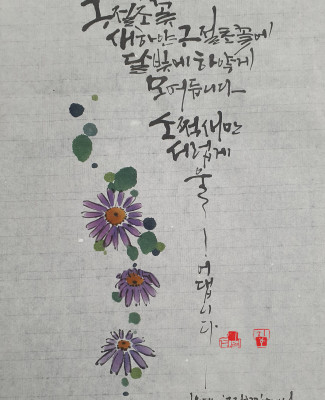 구절초꽃
새하얀 구절초꽃에
달빛만 하얗게
모여듭니다
소쩍새만
서럽게
울
어댑니다.